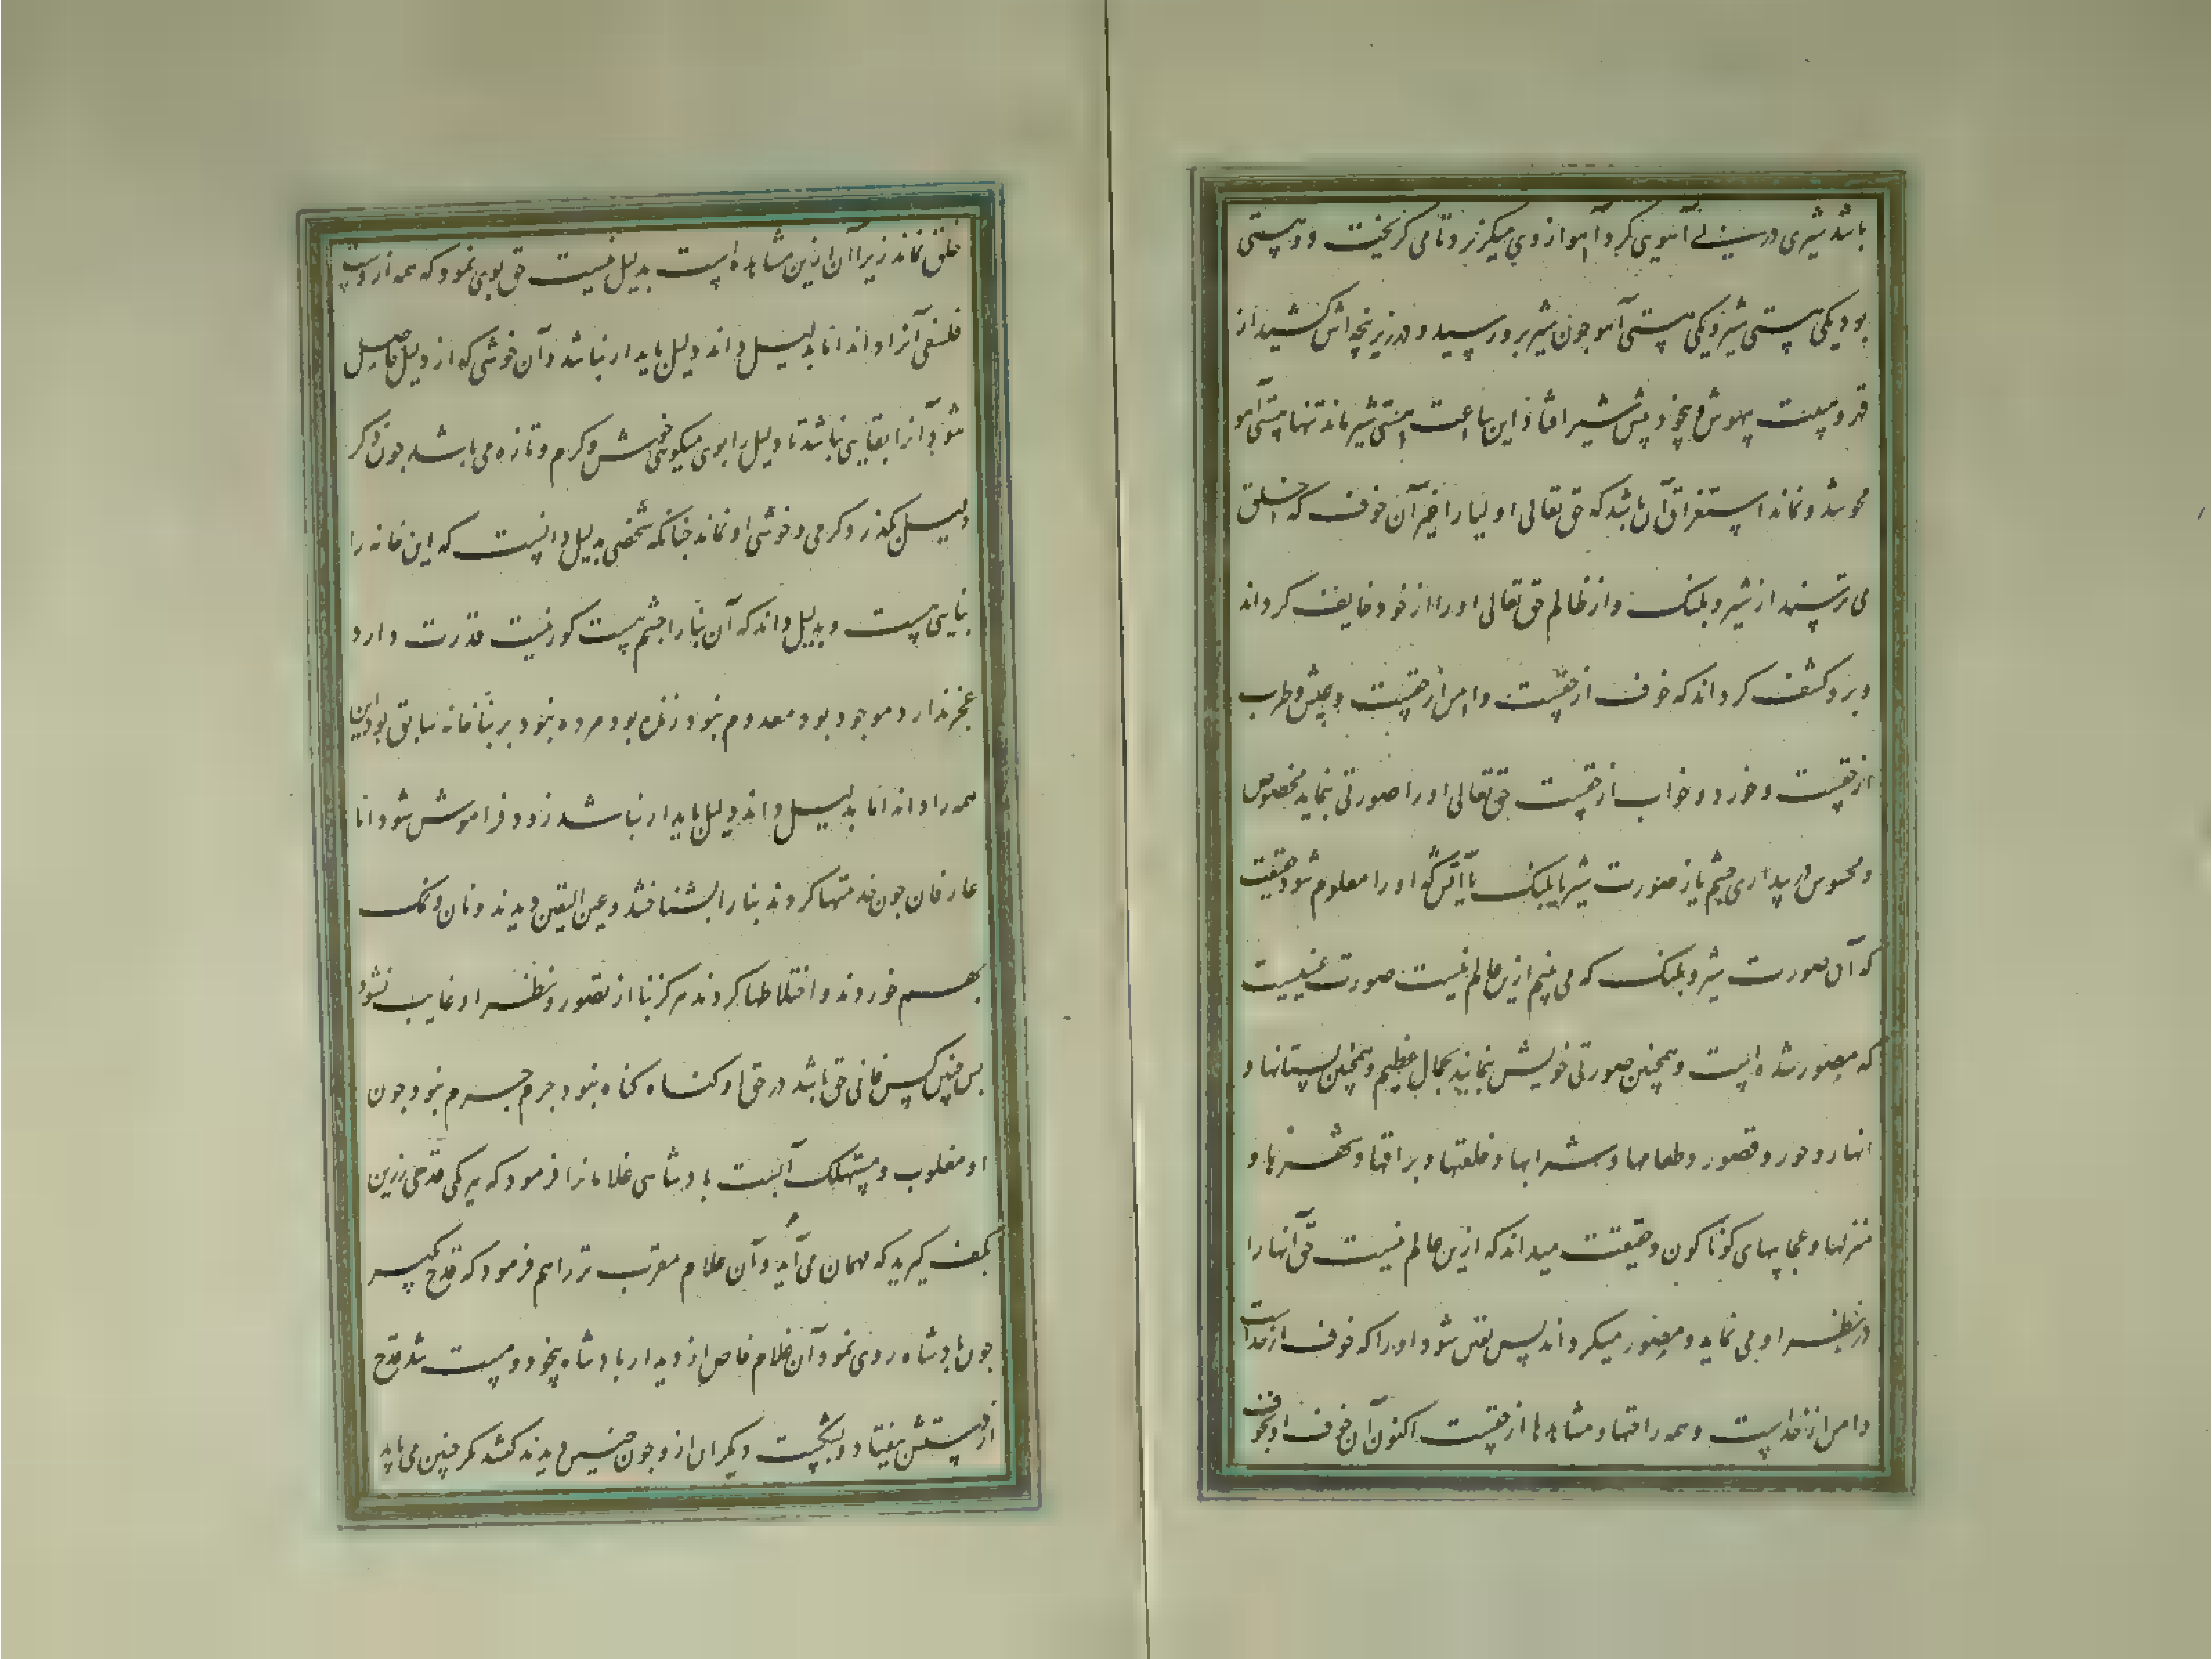 باشد شیری در پی آهوی کرد آهو از وی میکریزد و تا می کریخت دو هستی
بود یکی هستی شیر و یکی هستی آهو چون شیر بدو رسید و در زیر پنجه اش کشید از
قهر و هیبت بیهوش و بیخود پیش شیر افتاد این ساعت هستی شیر ماند تنها هستی آهو
محو شد و نماند استغراق آن باشد که حق تعالی اولیا را غیر آن خوف که خلق
می ترسند از شیر و پلنک و از ظالم حق تعالی او را از خود خایف کرداند
و برو کشف کرداند که خوف از حقست و امن از حقست و عیش و طرب
از حقست و خورد و خواب از حقست حق تعالی او را صورتی بنماید مخصوص
و محسوس در بیداری چشم باز صورت شیر یا پلنک یا آتش که او را معلوم شود حقیقت
که آن صورت شیر و پلنک که می بینم ازین عالم نیست صورت غیبیست
که مصور شده است و همچنین صورتی خویش بنماید بجمال عظیم و همچنین بستانها و
انهار و حور و قصور و طعامها و شرابها و خلعتها و براقها و شهرها و
منزلها و عجایبهای کوناکون و حقیقت میداند که ازین عالم نیست حق آنها را
در نظر او می نماید و مصور میکرداند پس یقین شود او را که خوف از خداست
و امن از خداست و همه راحتها و مشاهده ها از حقست اکنون آن خوف او بخوف
خلق نماند زیرا آن ازین مشاهده است بدلیل نیست حق بوی نمود که همه ازوست
فلسفی آنرا داند اما بدلیل داند دلیل پایدار نباشد و آن خوشی که از دلیل حاصل
شود آنرا بقایی نباشد تا دلیل را بوی میکویی خوش و کرم و تازه می باشد چون ذکر
دلیل بکذرد و کرمی و خوشی او نماند چنانکه شخصی بدلیل دانست که این خانه را
بنایی هست و بدلیل داند که آن بنا را چشم هست کور نیست قدرت دارد
عجز ندارد موجود بود معدوم نبود زنده بود مرده نبود بر بنا خانه سابق بود این
همه را داند اما بدلیل داند دلیل پایدار نباشد زود فراموش شود اما
عارفان چون خدمتها کردند بنا را بشناختند و عین الیقین دیدند و نان و نمک
بهم خوردند و اختلاطها کردند هرکز بنا از تصور و نظر او غایب نشود
پس چنین کس فانی حق باشد در حق او کناه کناه نبود جرم جرم نبود چون
او مغلوب و مستهلک آنست پادشاهی غلامانرا فرمود که هر یکی قدحی زرین
بکف کیرید که مهمان می آید و آن غلام مقرب تر را هم فرمود که قدح بکیر
چون پادشاه روی نمود آن غلام خاص از دیدار پادشاه بیخود و مست شد قدح
از دستش بیفتاد و بشکست دیکران ازو چون چنین دیدند کفتند مکر چنین می باید